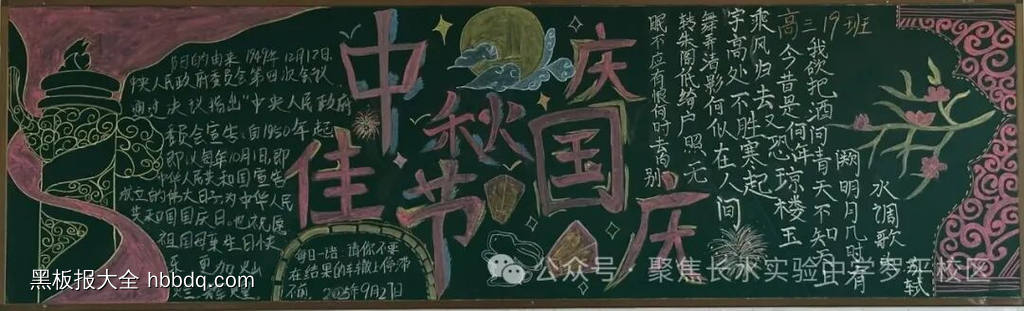 节日的由来 1949年12月12日,
中央人民政府委员会第四次会议
通过决议指出"中央人民政府
委员会宣告:自1950年起
即以每年10月1日,即
中华人民共和国宣告
成立的伟大日子,为中华人民
共和国国庆日。也祝愿
祖国母亲生日快
乐 更加
中秋
佳节
庆国庆
每日一语:请你不要
在结果的车辙上停滞
不前. 2025年9月27日
高三19班
水调歌头
苏轼
明月几时有
我欲把酒问青天不知天上
宫阙
今昔是何年
乘风归去又恐琼楼玉
宇高处不胜寒起
舞弄清影何似在人间
转朱阁低绮户照无
眠不应有恨何时去向别
黑板报大全 hbbdq.com
公众号·聚焦长水实验中学罗平校区